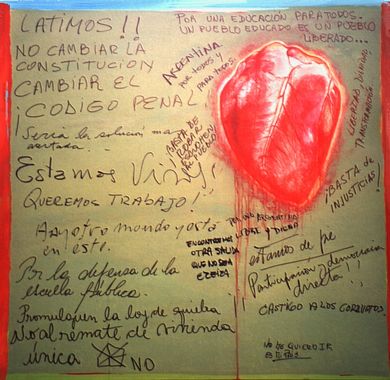 LATIMOS!!
NO CAMBIAR LA
CONSTITUCIÓN
CAMBIAR EL
¡CODIGO PENAL!
Seria la solución mas
acertada.
Estamos Vivos!
QUEREMOS TRABAJO!
Hay otro mundo y está
en este.
Por la defensa de la
escuela pública.
Promulguen la ley de quiebra
No al remate de vivienda
única
NO
POR UNA EDUCACIÓN PARA TODOS.
UN PUEBLO EDUCADO ES UN PUEBLO
LIBERADO...
ARGENTINA
POR TODOS Y
PARA TODOS.
¡BASTA DE
ROBAR
AL PUEBLO
LIBERTAD, DIGNIDAD,
TRANSFORMACIÓN
¡BASTA DE
INJUSTICIAS!
POR UNA ARGENTINA
LIBRE Y DIGNA
ENCONTREMOS
OTRA SALIDA
QUE NO SEA
EZEIZA
estamos de pie
Participación y democracia
directa!!
CASTIGO A LOS CORRUPTOS.
NO ME QUIERO IR